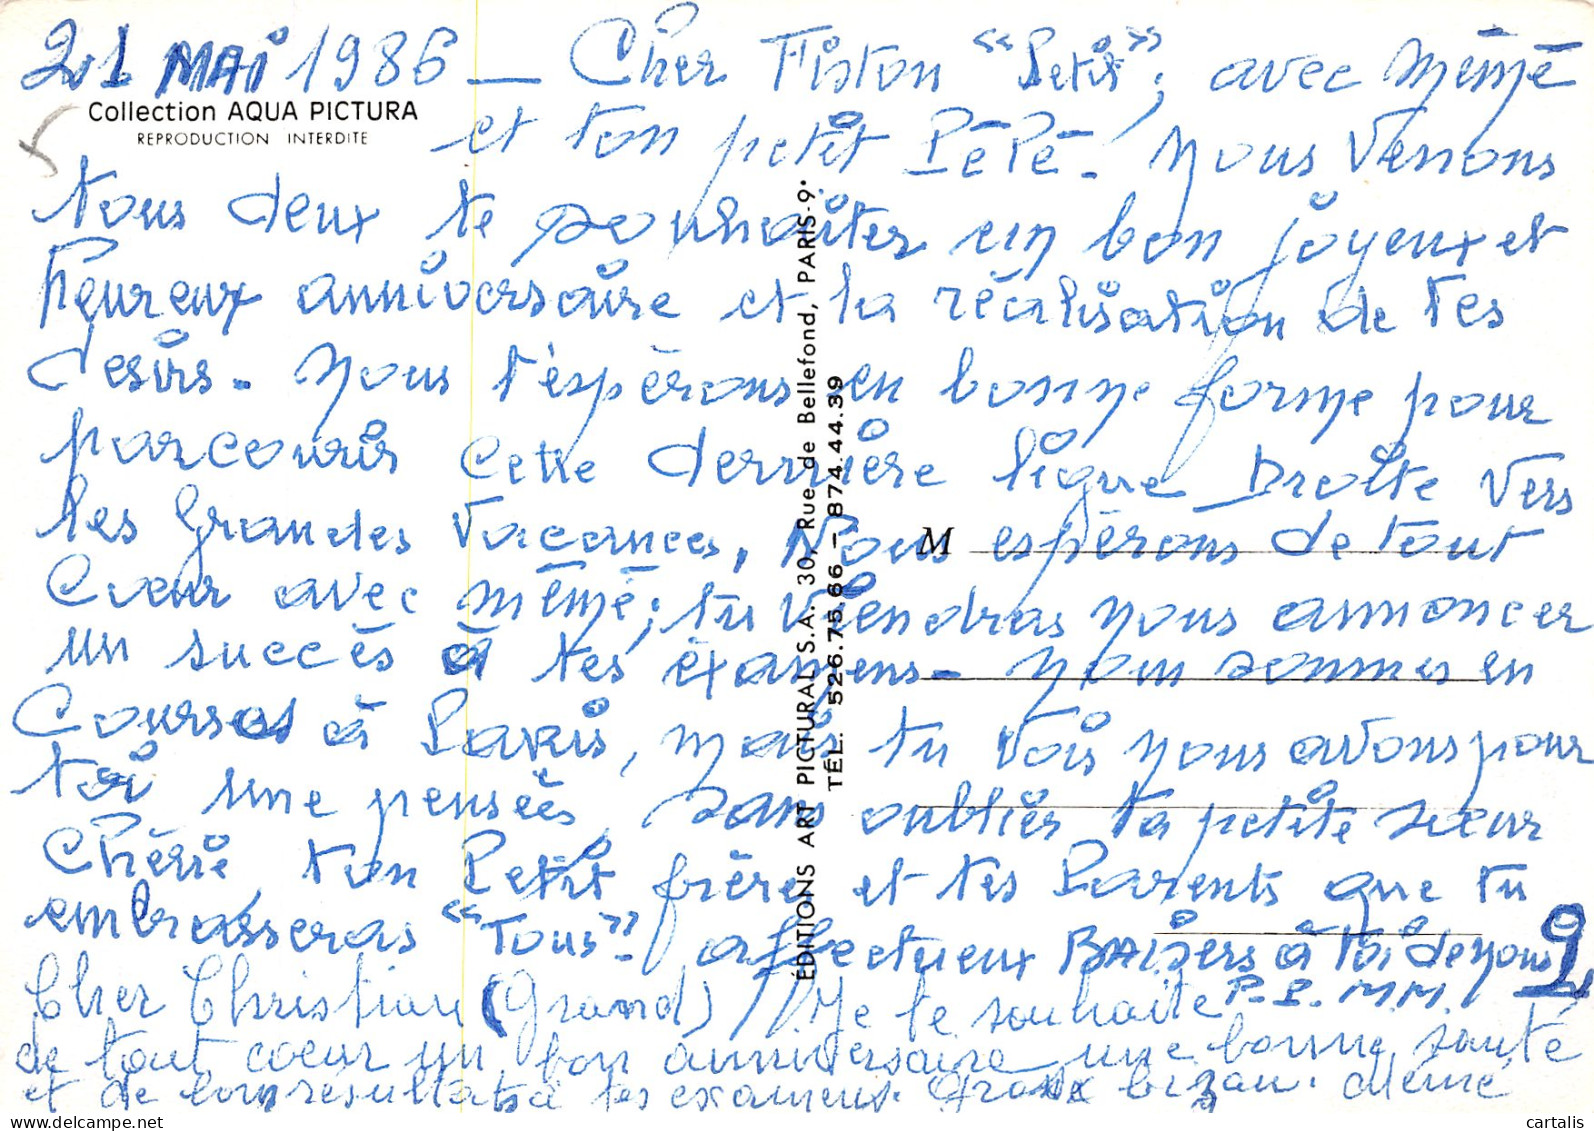 21 MAI 1986 — Cher Fiston "Petit"; avec Mémé
Collection AQUA PICTURA
REPRODUCTION INTERDITE
et ton petit PéPé - Nous Venons
tous deux te souhaiter un bon joyeux et
heureux anniversaire et la réalisation de tes
desirs - Nous t'espérons en bonne forme pour
parcourir cette dernière ligne Droite vers
les Grandes Vacances, Nous espérons de tout
M
Cœur avec mémé; tu viendras nous annoncer
un succès à tes éxamens - Nous sommes en
Courses à Paris, mais tu vois nous avons pour
toi une pensées, sans oublier ta petite sœur
Chérie, ton Petit frère et tes Parents que tu
embrasseras "Tous" - affectueux BAisers à toi de nous 2
P. P. MM.
Cher Christian (Grand) // Je te souhaite
de tout coeur un bon anniversaire une bonne santé
et de bons resultats a tes examens. Gros bizou. Mémé
ÉDITIONS ART PICTURAL S.A. 30, Rue de Bellefond, PARIS-9e
TÉL. 526.75.66 - 874.44.39
cartalis